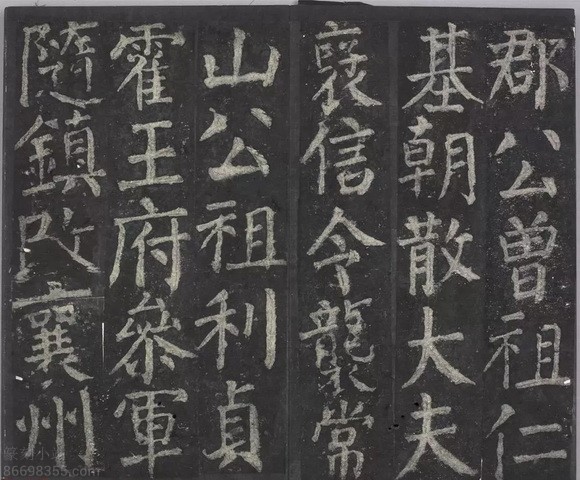 郡公曾祖仁
基朝散大夫
褒信令襲常
山公祖利貞
霍王府參軍
隨鎮改襄州
86698355.com